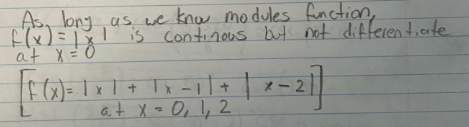 As, long as we know modules function,
f(x) = |x| is continous but not differentiate
at x = 0
[f(x) = |x| + |x - 1| + |x - 2|]
at x = 0, 1, 2